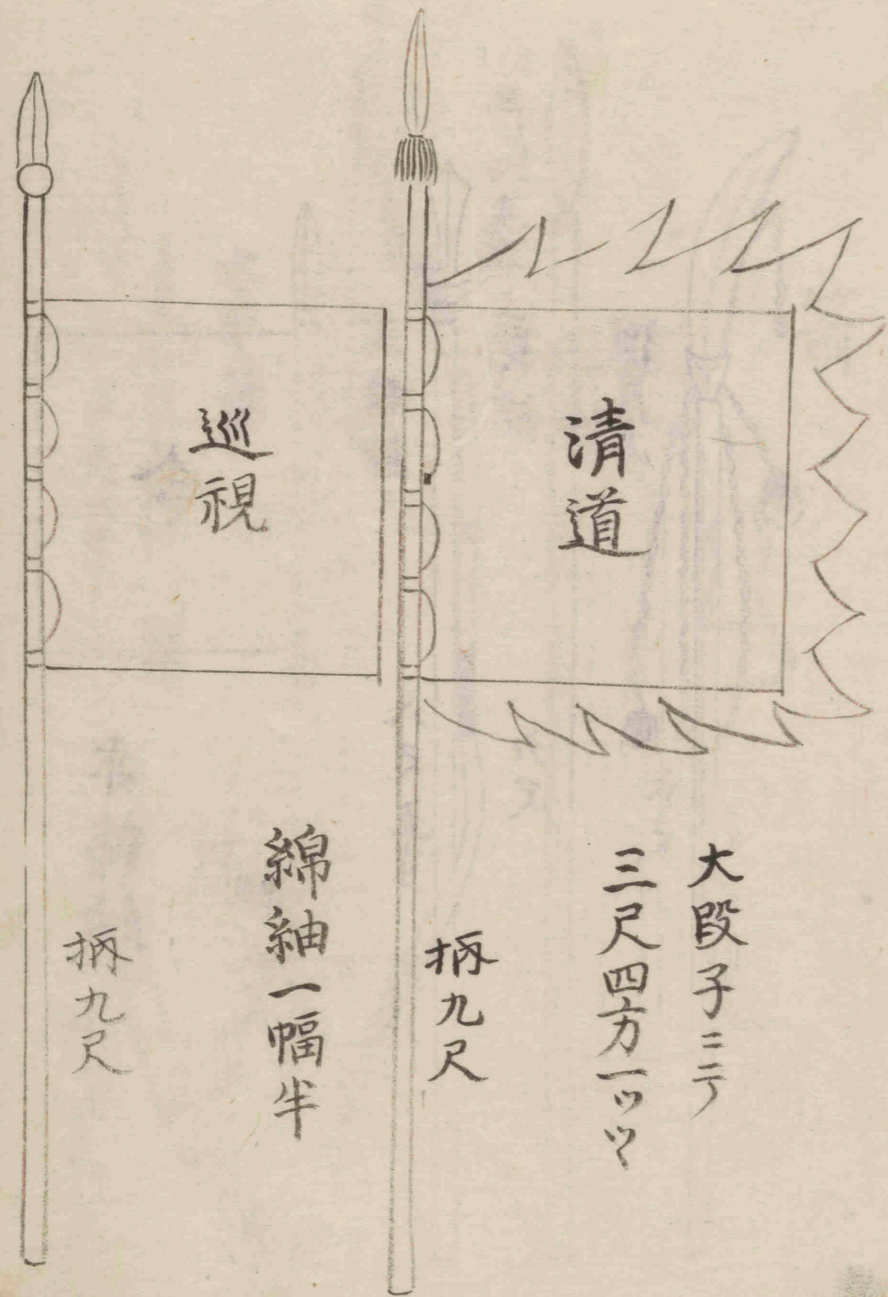 清道
大段子ニテ
三尺四方一ツヅヽ
柄九尺
巡視
綿紬一幅半
柄九尺